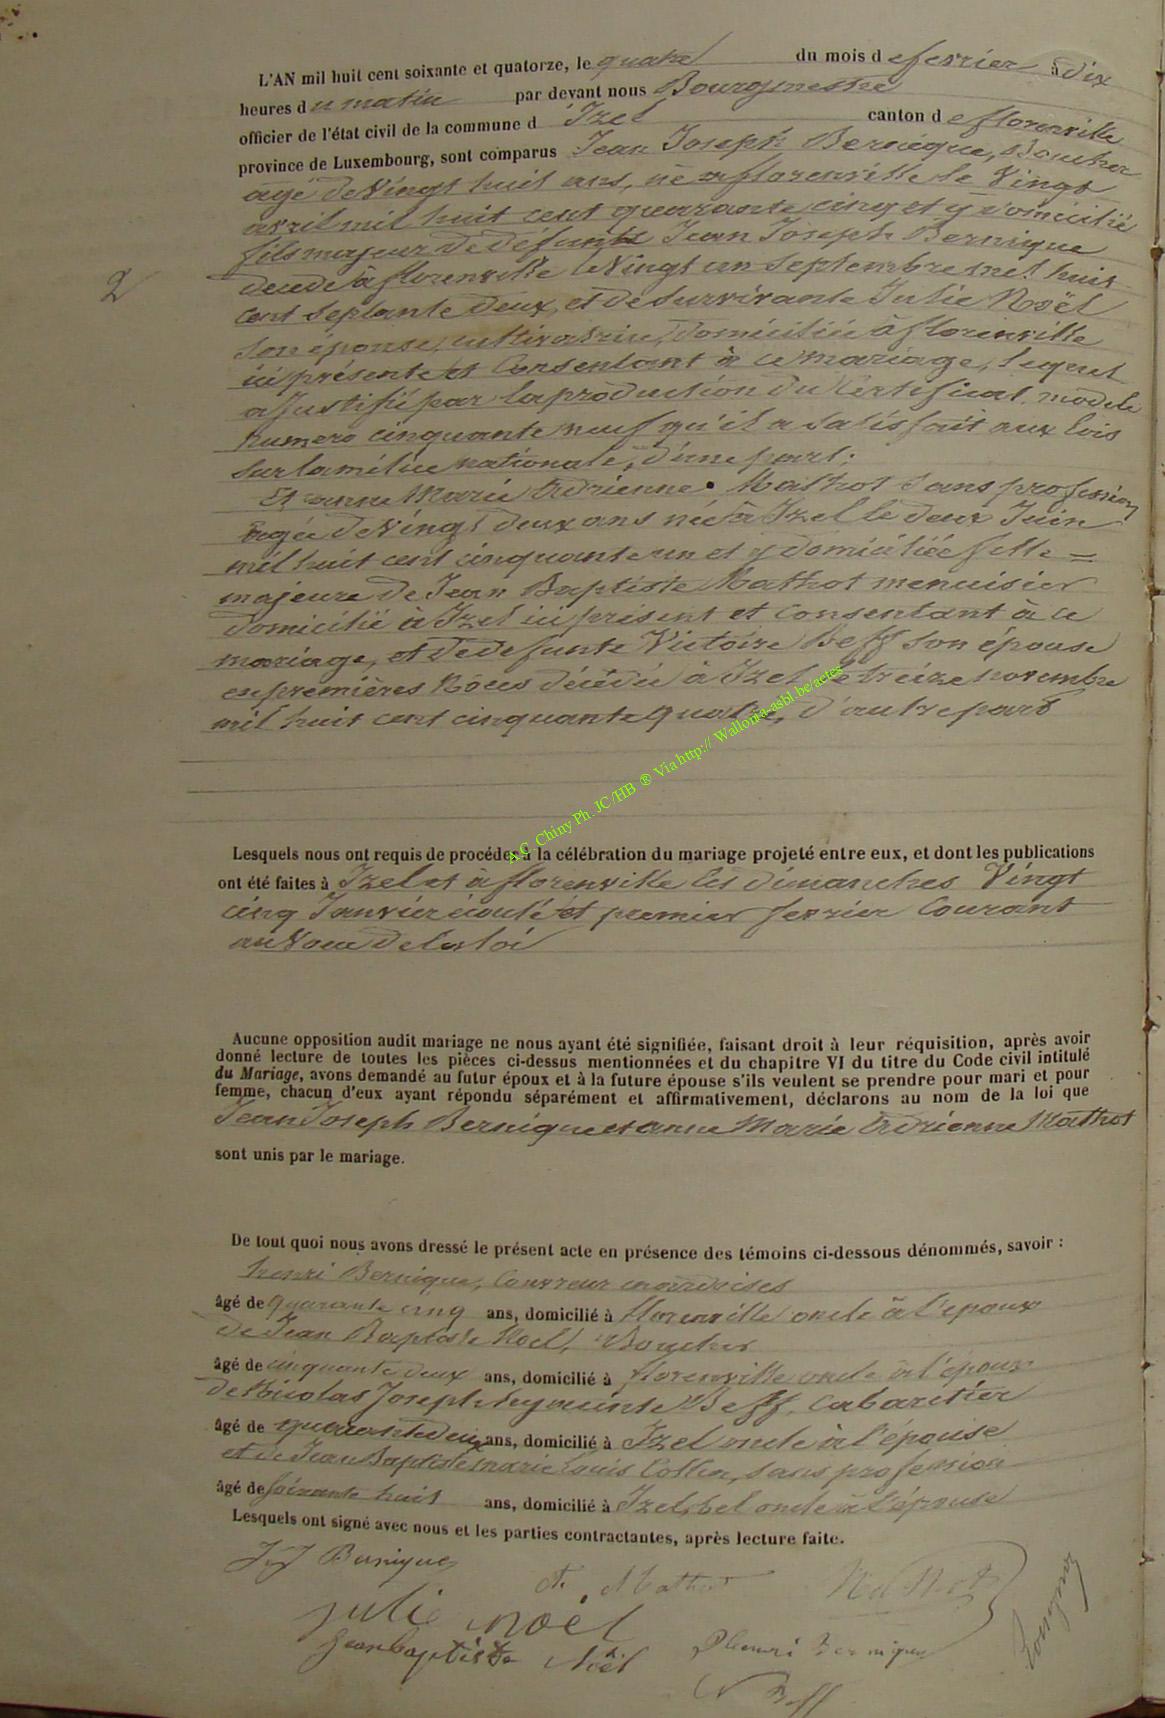 L'AN mil huit cent soixante et quatorze, le quatre du mois de fevrier à dix
heures du matin par devant nous Bourgmestre
officier de l'état civil de la commune d Izel canton de florenville
province de Luxembourg, sont comparus Jean Joseph Bernique, Boucher
agé de Vingt huit ans, né a florenville le Vingt
avril mil huit cent quarante cinq et y domicilié
fils majeur de défunt Jean Joseph Bernique
décédé à florenville le Vingt un Septembre mil huit
cent Septante deux, et de survivante Julie Noël
son épouse, cultivatrice, domiciliée à florenville
ici présente et Consentant à ce mariage, lequel
a justifié par la production du Certificat modele
numero cinquante neuf qu'il a satisfait aux lois
sur la milice nationale, d'une part;
2
Et anne Marie Adrienne Mathot sans profession
agée de Vingt deux ans née à Izel le deux Juin
mil huit cent cinquante un et y domiciliée fille =
majeure de Jean Baptiste Mathot menuisier
domicilié à Izel ici présent et consentant à ce
mariage, et de defunte Victoire Beff son épouse
en premières Nôces décédée à Izel le treize novembre
mil huit cent cinquante quatre, d'autre part
A.C. Chiny Ph. JC/HB ® Via http:// Wallonia-asbl.be/actes
Lesquels nous ont requis de procéder à la célébration du mariage projeté entre eux, et dont les publications
ont été faites à Izel et à florenville les dimanches Vingt
cinq Janvier écoulé et premier fevrier Courant
au Voeu de la loi
Aucune opposition audit mariage ne nous ayant été signifiée, faisant droit à leur réquisition, après avoir
donné lecture de toutes les pièces ci-dessus mentionnées et du chapitre VI du titre du Code civil intitulé
du Mariage, avons demandé au futur époux et à la future épouse s'ils veulent se prendre pour mari et pour
femme, chacun d'eux ayant répondu séparément et affirmativement, déclarons au nom de la loi que
Jean Joseph Bernique et anne Marie Adrienne Mathot
sont unis par le mariage.
De tout quoi nous avons dressé le présent acte en présence des témoins ci-dessous dénommés, savoir :
henri Bernique, Couvreur en ardoises
âgé de quarante cinq ans, domicilié à florenville oncle à l'époux
de Jean Baptiste Noël, Boucher
âgé de cinquante deux ans, domicilié à florenville oncle à l'époux
de Nicolas Joseph hyacinte Beff, Cabaretier
âgé de quarante deux ans, domicilié à Izel oncle à l'épouse
et de Jean Baptiste marie Louis Collin, sans profession
âgé de soixante huit ans, domicilié à Izel, bel oncle à l'épouse
Lesquels ont signé avec nous et les parties contractantes, après lecture faite.
J J Bernique
A. Mathot
julie noël
jean baptiste Noël
henri Bernique
N Beff